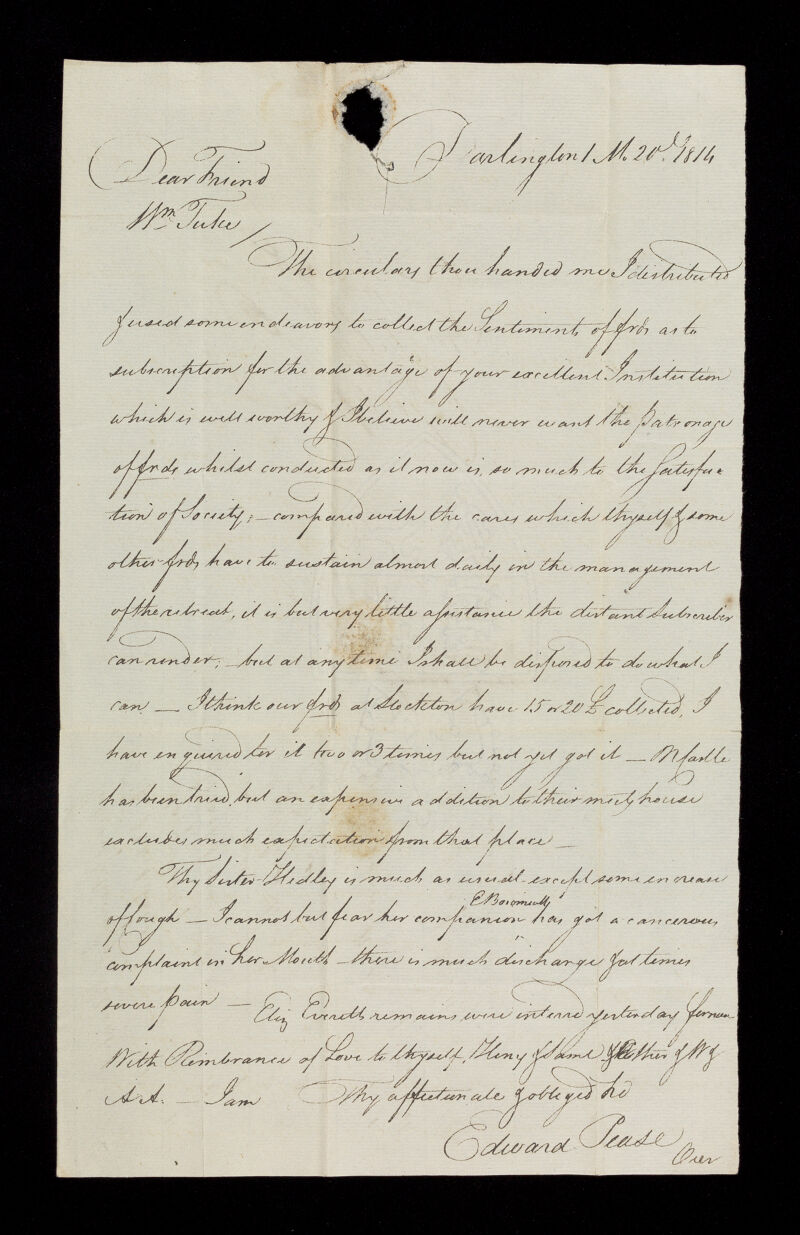 Darlington 1 Mo. 20th 1814
Dear Friend
Wm Tuke /
The circulars thou handed me I distributed
& used some endeavors to collect the Sentiments of frds as to
subscription for the advantage of your excellent Institution
which is well worthy & I believe will never want the Patronage
of frds whilst conducted as it now is, so much to the Satisfac
tion of Society; – compared with the cares which thyself & some
other frds have to sustain almost daily in the management
of the retreat, it is but very little assistance the distant Subscriber
can render; – but at any time I shall be disposed to do what I
can – I think our frds at Stockton have 15 or 20 £ collected, I
have enquired for it two or 3 times but not yet got it – NCastle
has been tried, but an expensive addition to their meetg house
excludes much expectation from that place –
Thy Sister Hedley is much as usual except some encrease
of Cough – I cannot but fear her companion E has got a cancerous
complaint in her Mouth – there is much discharge & at times
severe pain – Eliz Everetts remains were interred yesterday
With Rembrance of Love to thyself, Heny & Saml & W &
A A. – I am Thy affectionate & obliged frd
Edward Pease
Over